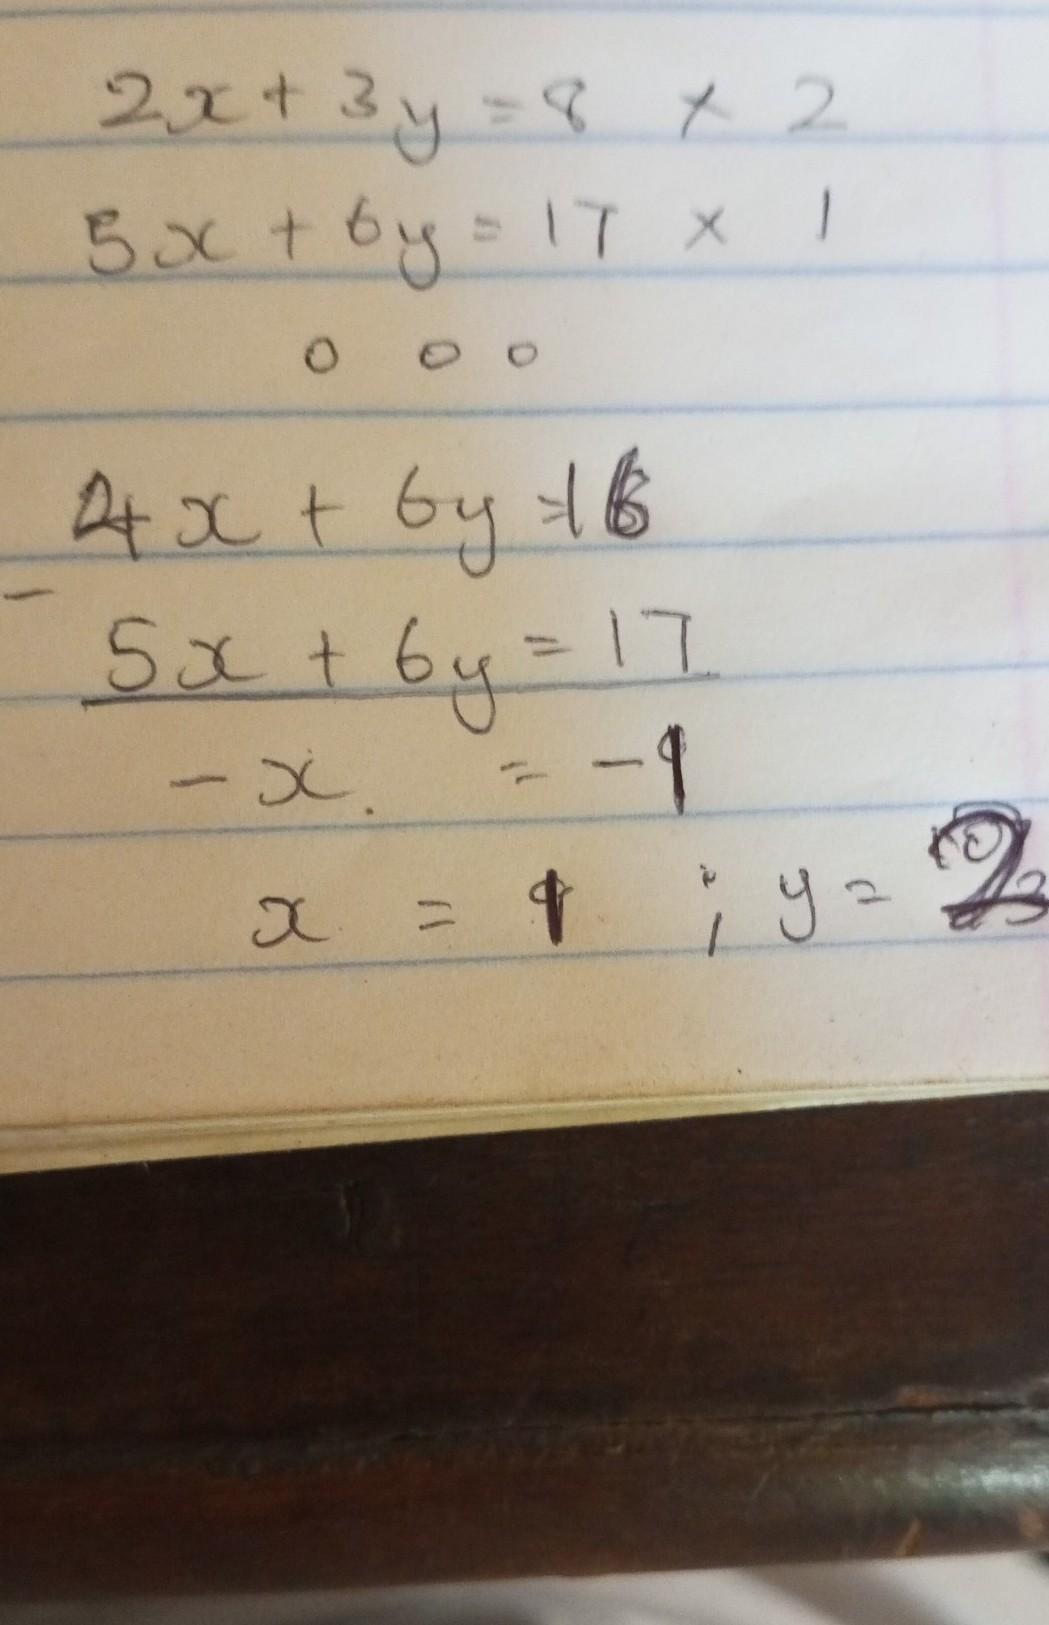 2x + 3y = 8 × 2
5x + 6y = 17 × 1
o o o
4x + 6y = 16
− 5x + 6y = 17
−x. = −1
x = 1 ; y = 2